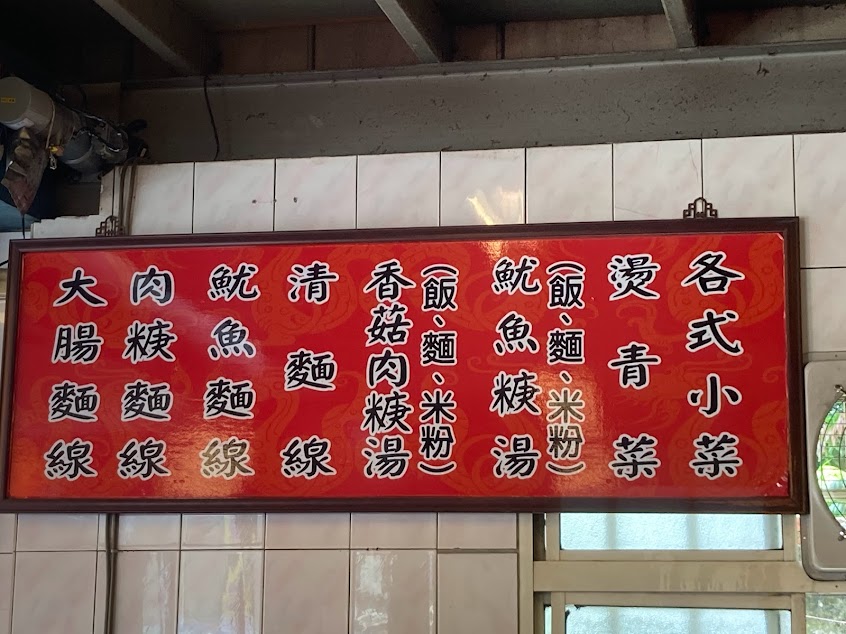 大腸麵線
肉焿麵線
魷魚麵線
清麵線
香菇肉焿湯
(飯、麵、米粉)
魷魚焿湯
(飯、麵、米粉)
燙青菜
各式小菜